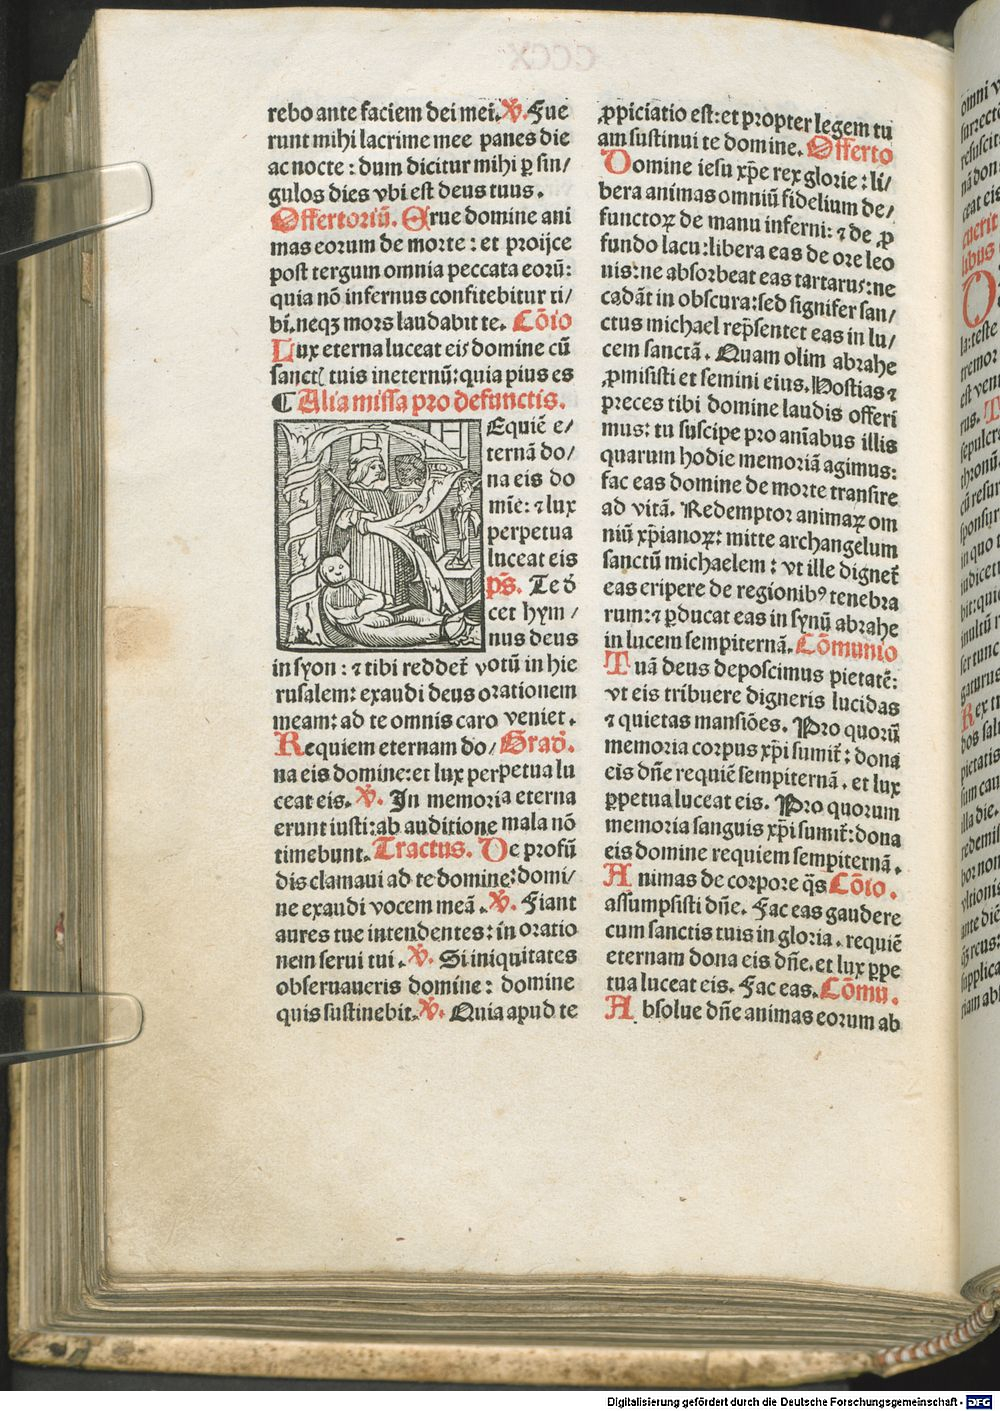 rebo ante faciem dei mei. ℣. Fue
runt mihi lacrime mee panes die
ac nocte : dum dicitur mihi ꝑ sin/
gulos dies vbi est deus tuus.
Offertoriū. Erue domine ani
mas eorum de morte : et proijce
post tergum omnia peccata eorū:
quia nō infernus confitebitur ti/
bi. neqꝫ mors laudabit te. Cōio
Lux eterna luceat eis domine cū
sanctꝭ tuis ineternū: quia pius es
¶ Alia missa pro defunctis.
Equiē e/
ternā do/
na eis do
mīe: ⁊ lux
perpetua
luceat eis
ps̄. Te d̄
cet hym /
nus deus
in syon : ⁊ tibi reddet᷑ votū in hie
rusalem: exaudi deus orationem
meam: ad te omnis caro veniet.
Requiem eternam do/ Grad̄.
na eis domine: et lux perpetua lu
ceat eis. ℣. In memoria eterna
erunt iusti: ab auditione mala nō
timebunt. Tractus. De profū
dis clamaui ad te domine: domi/
ne exaudi vocem meā. ℣. Fiant
aures tue intendentes: in oratio
nem serui tui. ℣. Si iniquitates
obseruaueris domine: domine
quis sustinebit. ℣. Quia apud te
ꝓpiciatio est: et propter legem tu
am sustinui te domine. Offerto
Domine iesu xp̄e rex glorie : li/
bera animas omniū fidelium de/
functoꝝ de manu inferni: ⁊ de ꝓ
fundo lacu: libera eas de ore leo
nis: ne absorbeat eas tartarus: ne
cadāt in obscura: sed signifer san/
ctus michael rep̄sentet eas in lu/
cem sanctā. Quam olim abrahe
ꝓmisisti et semini eius. Hostias ⁊
preces tibi domine laudis offeri
mus: tu suscipe pro aīabus illis
quarum hodie memoriā agimus:
fac eas domine de morte transire
ad vitā. Redemptor animaꝝ om
niū xp̄ianoꝝ: mitte archangelum
sanctū michaelem : vt ille dignet᷑
eas eripere de regionibꝰ tenebra
rum: ⁊ ꝑducat eas in synū abrahe
in lucem sempiternā. Cōmunio
Tuā deus deposcimus pietatē:
vt eis tribuere digneris lucidas
⁊ quietas mansiōes. Pro quorū
memoria corpus xp̄i sumit᷑ : dona
eis dn̄e requiē sempiternā. et lux
ꝑpetua luceat eis. Pro quorum
memoria sanguis xp̄i sumit᷑: dona
eis domine requiem sempiternā.
Animas de corpore q̄s Cōio.
assumpsisti dn̄e. Fac eas gaudere
cum sanctis tuis in gloria. requiē
eternam dona eis dn̄e. et lux ꝑpe
tua luceat eis. Fac eas. Cōmu.
Absolue dn̄e animas eorum ab
Digitalisierung gefördert durch die Deutsche Forschungsgemeinschaft - DFG